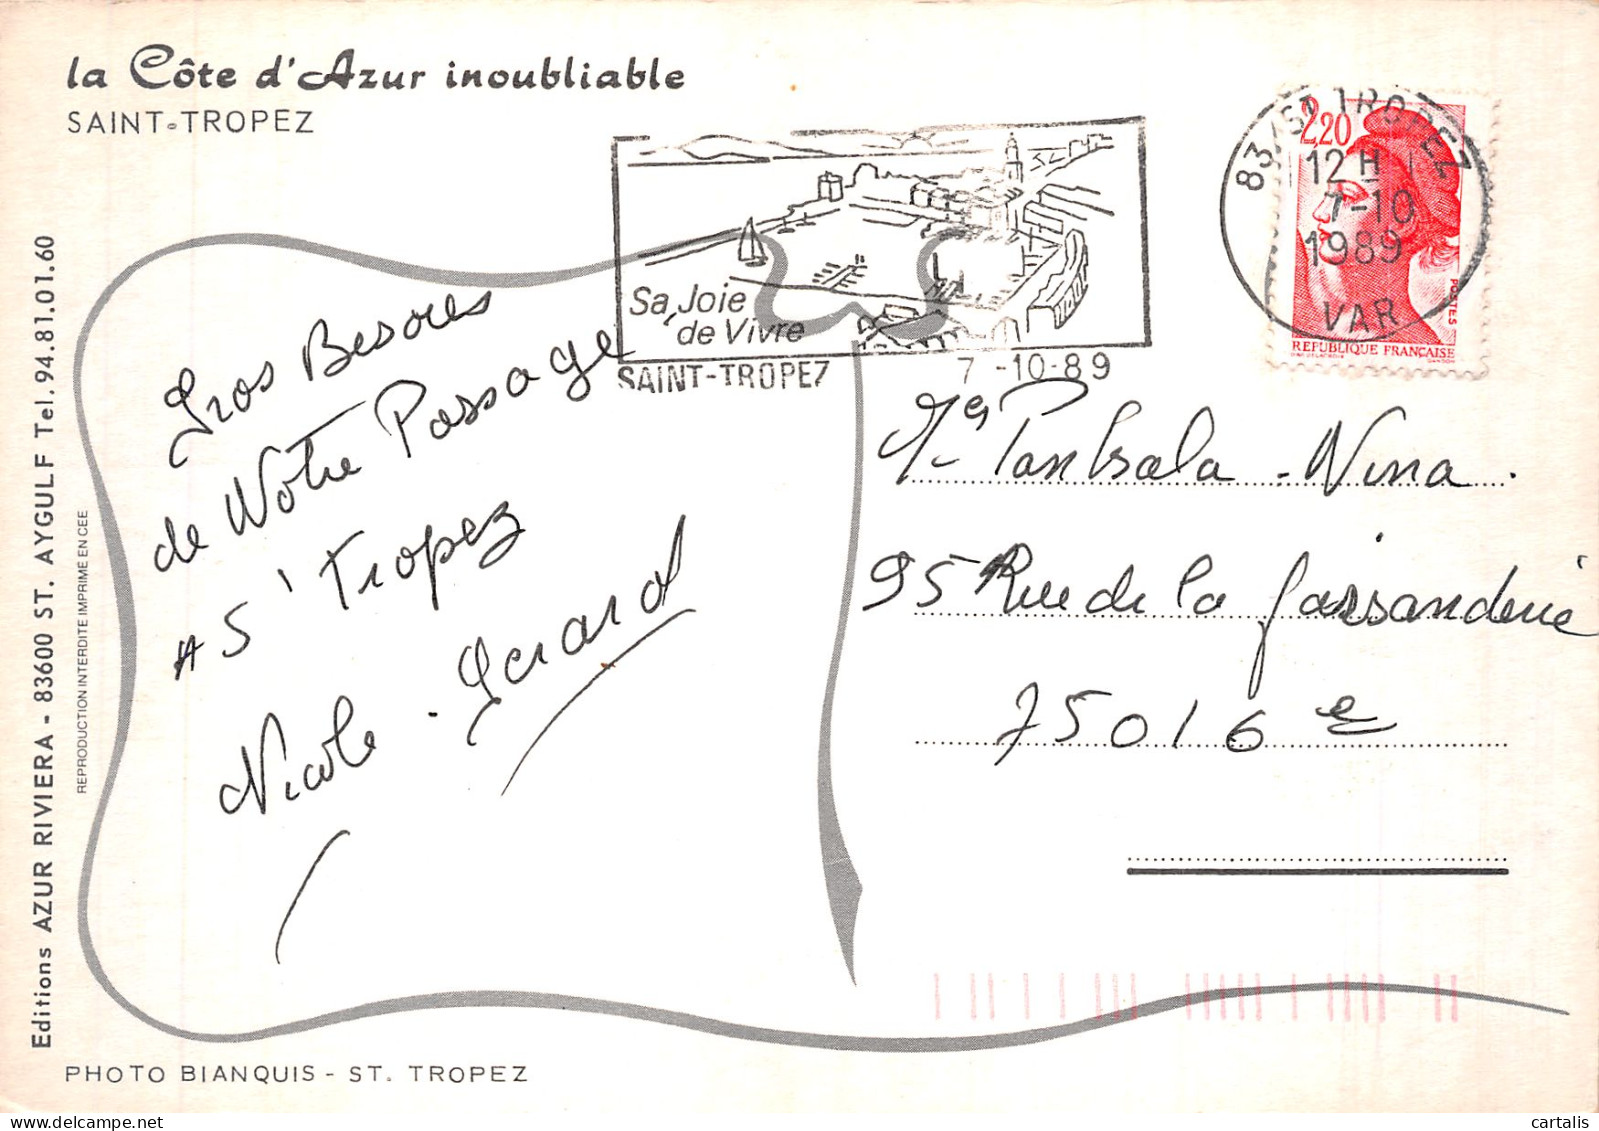 la Côte d'Azur inoubliable
SAINT-TROPEZ
Sa Joie
de Vivre
SAINT-TROPEZ 7-10-89
83/ST TROPEZ
12 H
7-10
1989
VAR
2,20
POSTES
REPUBLIQUE FRANÇAISE
Gros Besoes
de Notre Passage
A S' Tropez
Nicole - Gerard
Nina.
95 Rue de la
75016 e
Editions AZUR RIVIERA - 83600 ST. AYGULF Tel. 94.81.01.60
REPRODUCTION INTERDITE IMPRIME EN CEE
PHOTO BIANQUIS - ST. TROPEZ
cartalis